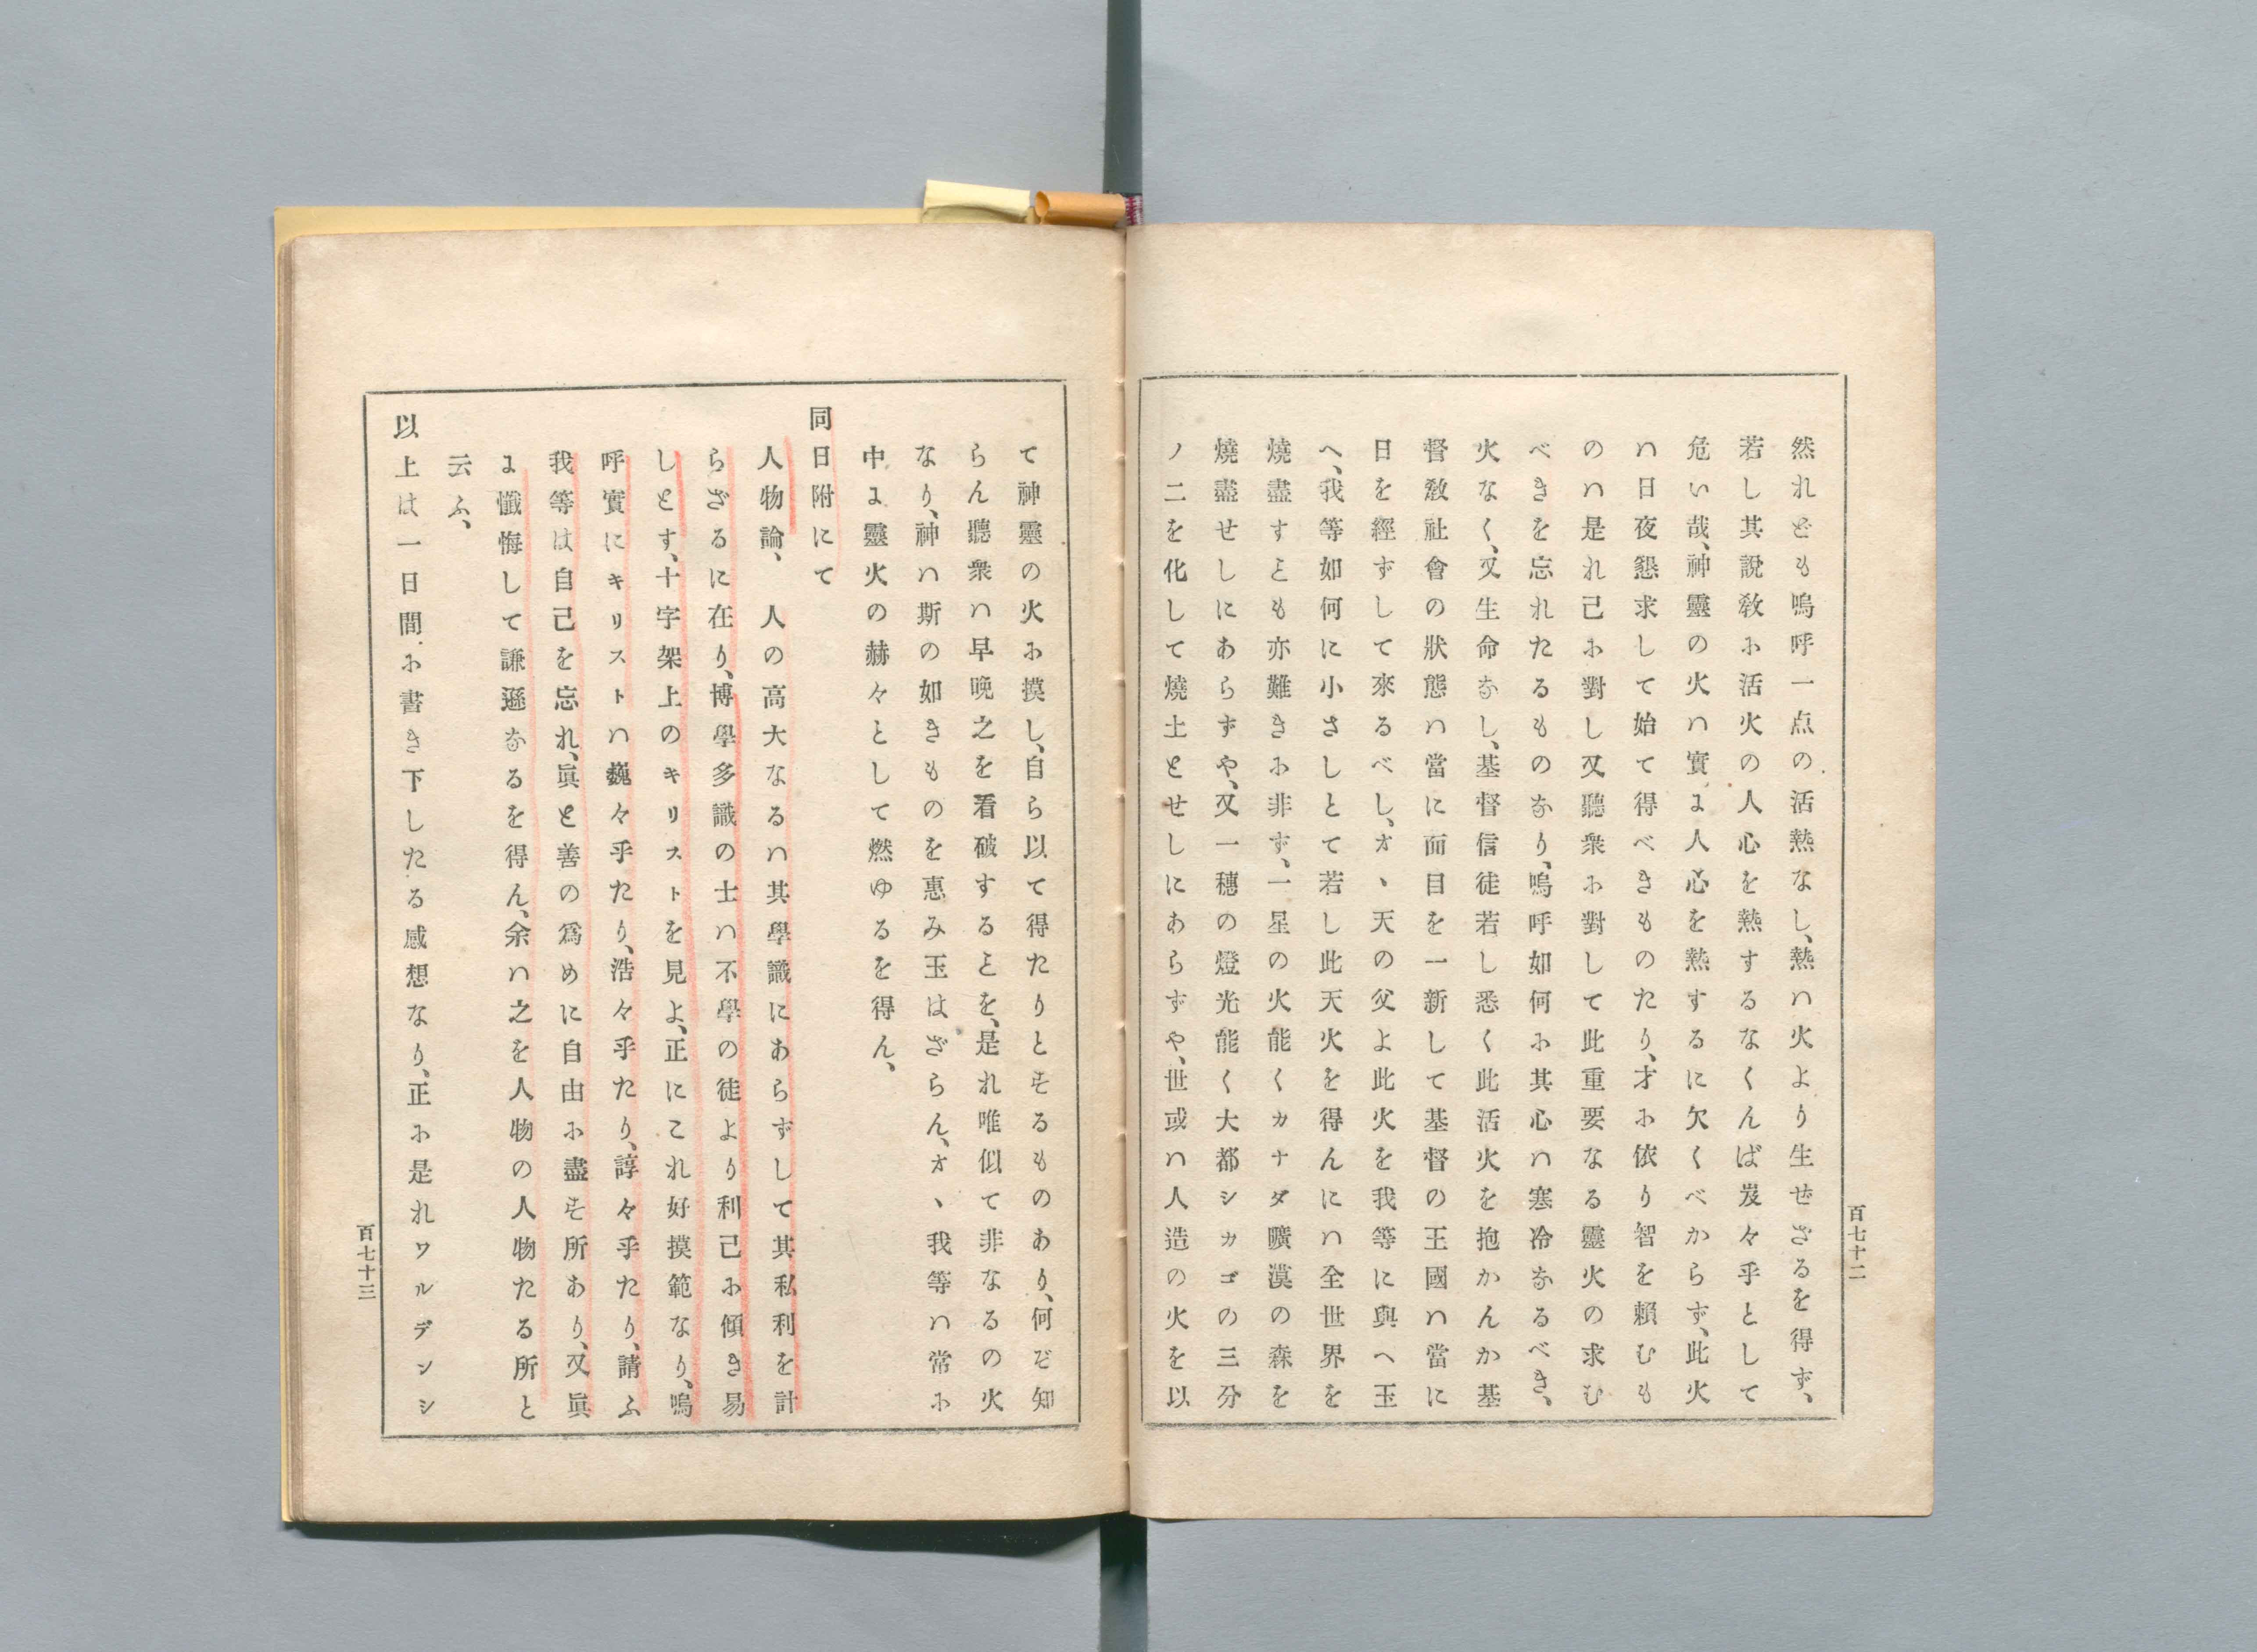 然れども嗚呼一点の活熱なし、熱ハ火より生ぜざるを得ず、
若し其說敎お活火の人心を熱するなくんば岌々乎として
危い哉、神靈の火ハ實よ人心を熱するに欠くべからず、此火
ハ日夜懇求して始て得べきものたり、才お依り智を賴むも
のハ是れ己お對し又聽衆お對して此重要なる靈火の求む
べきを忘れたるものなり、嗚呼如何お其心ハ寒冷なるべき、
火なく、又生命なし、基督信徒若し悉く此活火を抱かんか基
督敎社會の狀態ハ當に面目を一新して基督の王國ハ當に
日を經ずして來るべし、オヽ天の父よ此火を我等に與へ玉
へ、我等如何に小さしとて若し此天火を得んにハ全世界を
燒盡すとも亦難きお非ず、一星の火能くカナダ曠漠の森を
燒盡せしにあらずや、又一穗の燈光能く大都シカゴの三分
ノ二を化して燒土とせしにあらずや、世或ハ人造の火を以
百七十二
て神靈の火お摸し、自ら以て得たりとするものあり、何ぞ知
らん聽衆ハ早晩之を看破するとを、是れ唯似て非なるの火
なり、神ハ斯の如きものを惠み玉はざらん、オヽ我等ハ常お
中よ靈火の赫々として燃ゆるを得ん、
同日附にて
人物論、　人の高大なるハ其學識にあらずして其私利を計
らざるに在り、博學多識の士ハ不學の徒より利己お傾き易
しとす、十字架上のキリストを見よ、正にこれ好摸範なり、嗚
呼實にキリストハ巍々乎たり、浩々乎たり、諄々乎たり、請ふ
我等は自己を忘れ、眞と善の爲めに自由お盡す所あり、又眞
よ懺悔して謙遜なるを得ん、余ハ之を人物の人物たる所と
云ふ、
以上は一日間お書き下したる感想なり、正お是れワルデンシ
百七十三